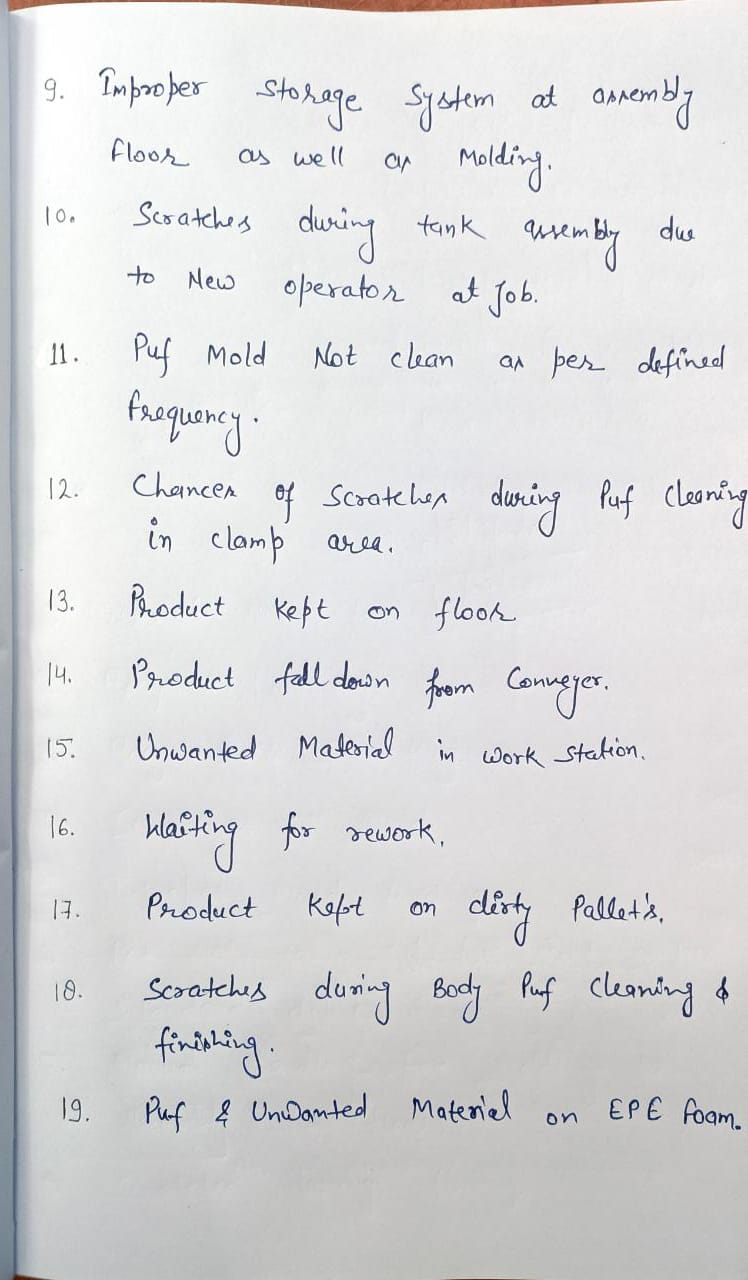 9. Improper Storage System at assembly
floor as well as Molding.
10. Scratches during tank assembly due
to New operator at Job.
11. Puf Mold Not clean as per defined
frequency.
12. Chances of Scratches during Puf Cleaning
in clamp area.
13. Product kept on floor
14. Product fall down from Conveyer.
15. Unwanted Material in work station.
16. Waiting for rework.
17. Product Kept on dirty Pallet's.
18. Scratches during Body Puf Cleaning &
finishing.
19. Puf & Unwanted Material on EPE foam.